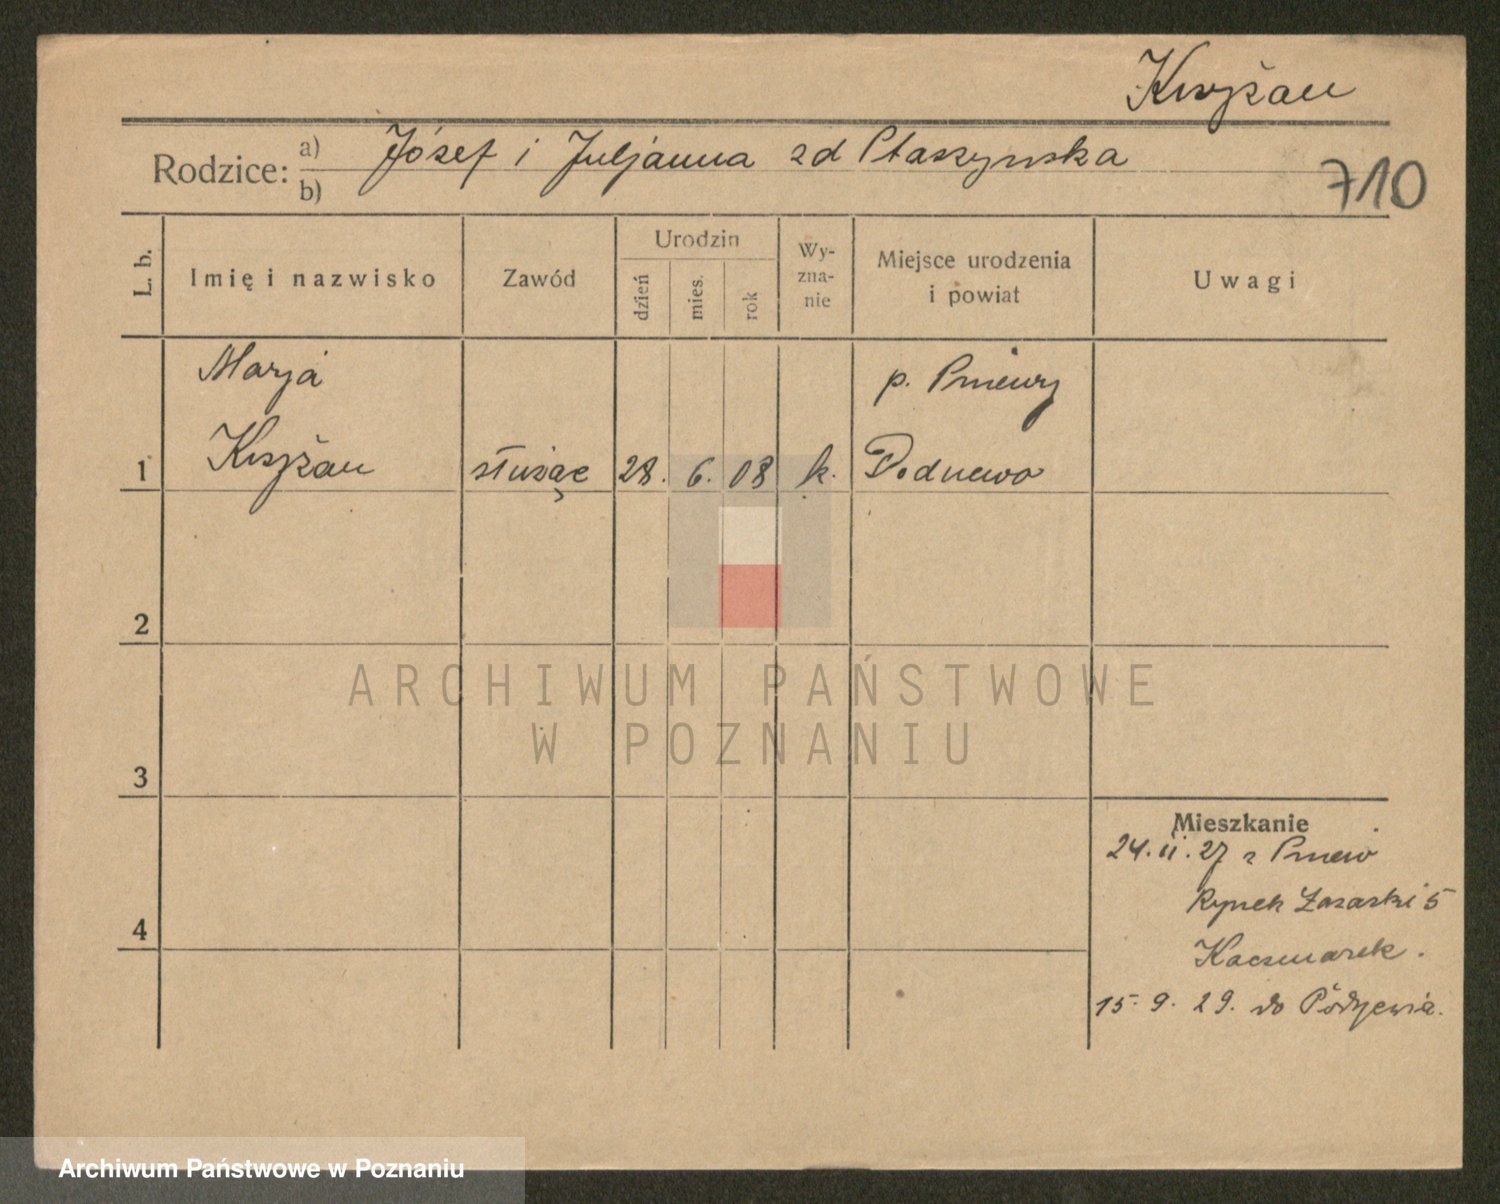 Krzyżan
Rodzice: a) Józef i Juljanna zd Ptaszyńska
b)
710
L. b.
Imię i nazwisko
Zawód
Urodzin
dzień
mies.
rok
Wy-
zna-
nie
Miejsce urodzenia
i powiat
Uwagi
Marja
p. Pniewy
1
Krzyżan
służąc
28.
6.
08
k.
2
3
4
Mieszkanie
24. II. 27 z Pniew
Rynek Łazarski 5
Kaczmarek.
15. 9. 29. do
ARCHIWUM PAŃSTWOWE
W POZNANIU
Archiwum Państwowe w Poznaniu